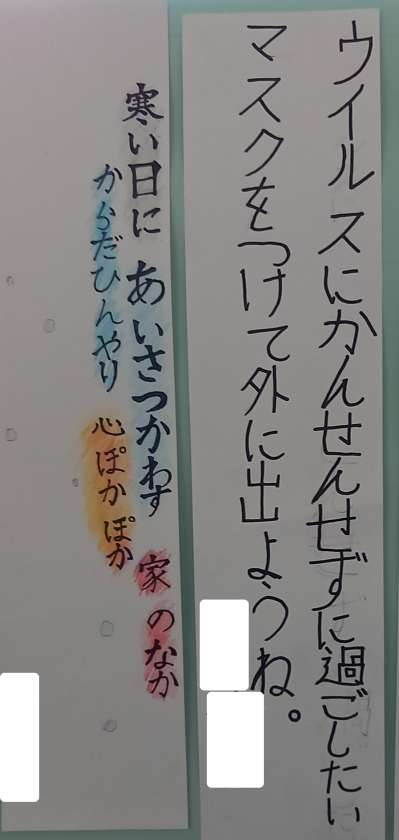 ウイルスにかんせんせずに過ごしたい
マスクをつけて外に出ようね。
寒い日に あいさつかわす 家のなか
からだひんやり 心ぽかぽか